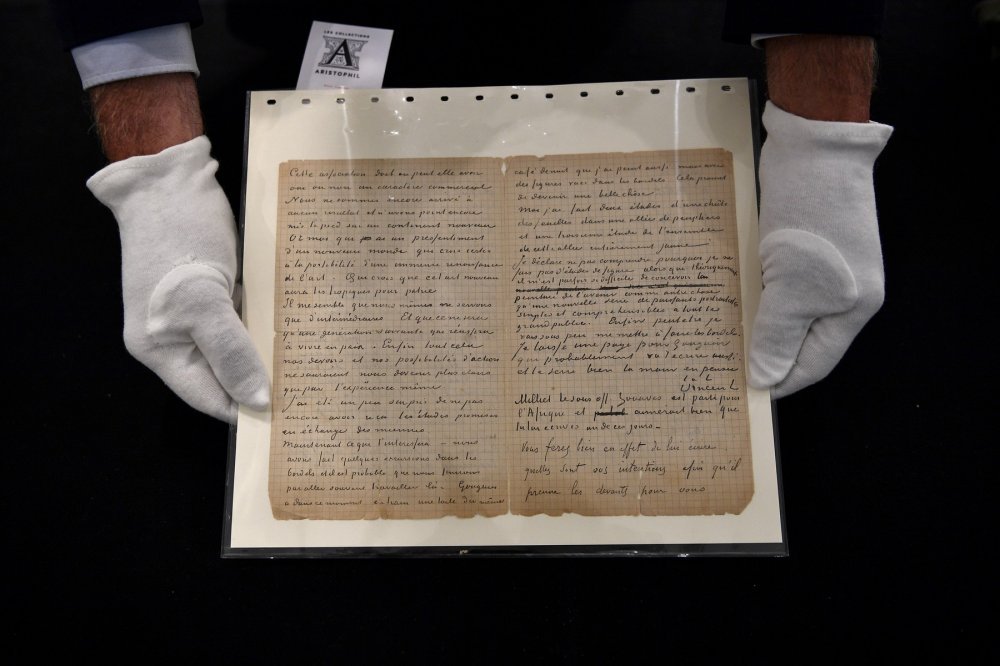 LES COLLECTIONS
A
ARISTOPHIL
Cette association dont on peut elle avoir
ou non un caractère commercial
Nous ne sommes encore arrivé à
aucun résultat et n'avons point encore
mis le pied sur un continent nouveau
Et mais que as un pressentiment
d'un nouveau monde qui crois certes
à la possibilité d'une immense renaissance
de l'art. Qui crois que cet art nouveau
aura les tropiques pour patrie
Il me semble que nous mêmes ne servons
que d'intermédiaires. Et que ce ne sera
qu'une génération suivante qui réussira
à vivre en paix. Enfin tout cela
nos devoirs et nos possibilités d'action
ne sauraient nous devenir plus clairs
que par l'expérience même.
J'ai été un peu surpris de ne pas
encore avoir reçu les études promises
en échange des miennes
Maintenant ce que t'interessera - nous
avons fait quelques excursions dans les
bordels et il est probable que nous finirons
par aller souvent travailler là. Gauguin
a dans ce moment en train une toile du même
café de nuit que j'ai peint aussi mais avec
des figures vues dans les bordels. Cela promet
de devenir une belle chose.
Moi j'ai fait deux études d'une chûte
des feuilles dans une allée de peupliers
et une troisieme étude de l'ensemble
de cette allée entièrement jaune.
Je déclare ne pas comprendre pourquoi je ne
fais pas d'études de figure alors que théoriquement
il m'est parfois si difficile de concevoir la
peinture de l'avenir comme autre chose
qu'une nouvelle serie de portraitistes
simples et compréhensibles à tout le
grand public. Enfin peut être je
vais sous peu me mettre à faire les bordels.
Je laisse une page pour Gauguin
qui probablement va t'ecrire aussi.
et te serre bien la main en pensée
t. à t.
Vincent
Milliet le sous off. Zouaves est parti pour
l'Afrique et aimerait bien que
tu lui ecrives un de ces jours.-
Vous ferez bien en effet de lui écrire
quelles sont vos intentions afin qu'il
prenne les devants pour vous